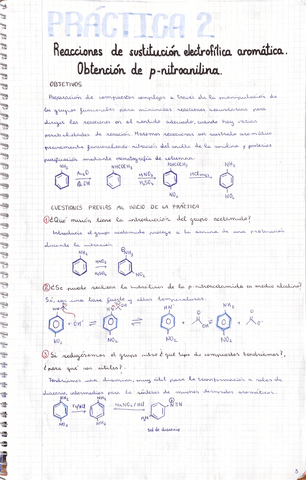 PRÁCTICA 2
Reacciones de sustitución electrofílica aromática.
Obtención de p-nitroanilina.
OBJETIVOS
Preparación de compuestos complejos a través de la manipulación de
los grupos funcionales para minimizar reacciones secundarias para
dirigir las reacciones en el sentido adecuado, cuando hay varias
posibilidades de reacción. Haremos reacciones con sustrato aromático
previamente funcionalizado: nitración del anillo de la anilina y posterior
purificación mediante cromatografía de columna.
NH2 NHCOCH3 NHCOCH3 NH2
HNO3 HCl
H2SO4
NO2 NO2
CUESTIONES PREVIAS AL INICIO DE LA PRÁCTICA
① ¿Qué misión tiene la introducción del grupo acetamido?
Introducir el grupo acetamido protege a la amina de una protonación
durante la nitración.
NH2 NH3
HNO3
H2SO4
NO2
② ¿Se puede realizar la hidrólisis de la p-nitroacetamida en medio alcalino?
Sí, con una base fuerte y altas temperaturas.
+ OH-
NO2 NO2 NO2 NO2
③ Si redujésemos el grupo nitro ¿qué tipo de compuestos tendríamos?,
¿para qué son útiles?
Tendríamos una diamina, muy útil para la transformación a sales de
diazonio intermedios para la síntesis de muchos derivados aromáticos.
NH2 NH2
Fe/HCl NaNO2/HCl
NO2 NH2
sal de diazonio